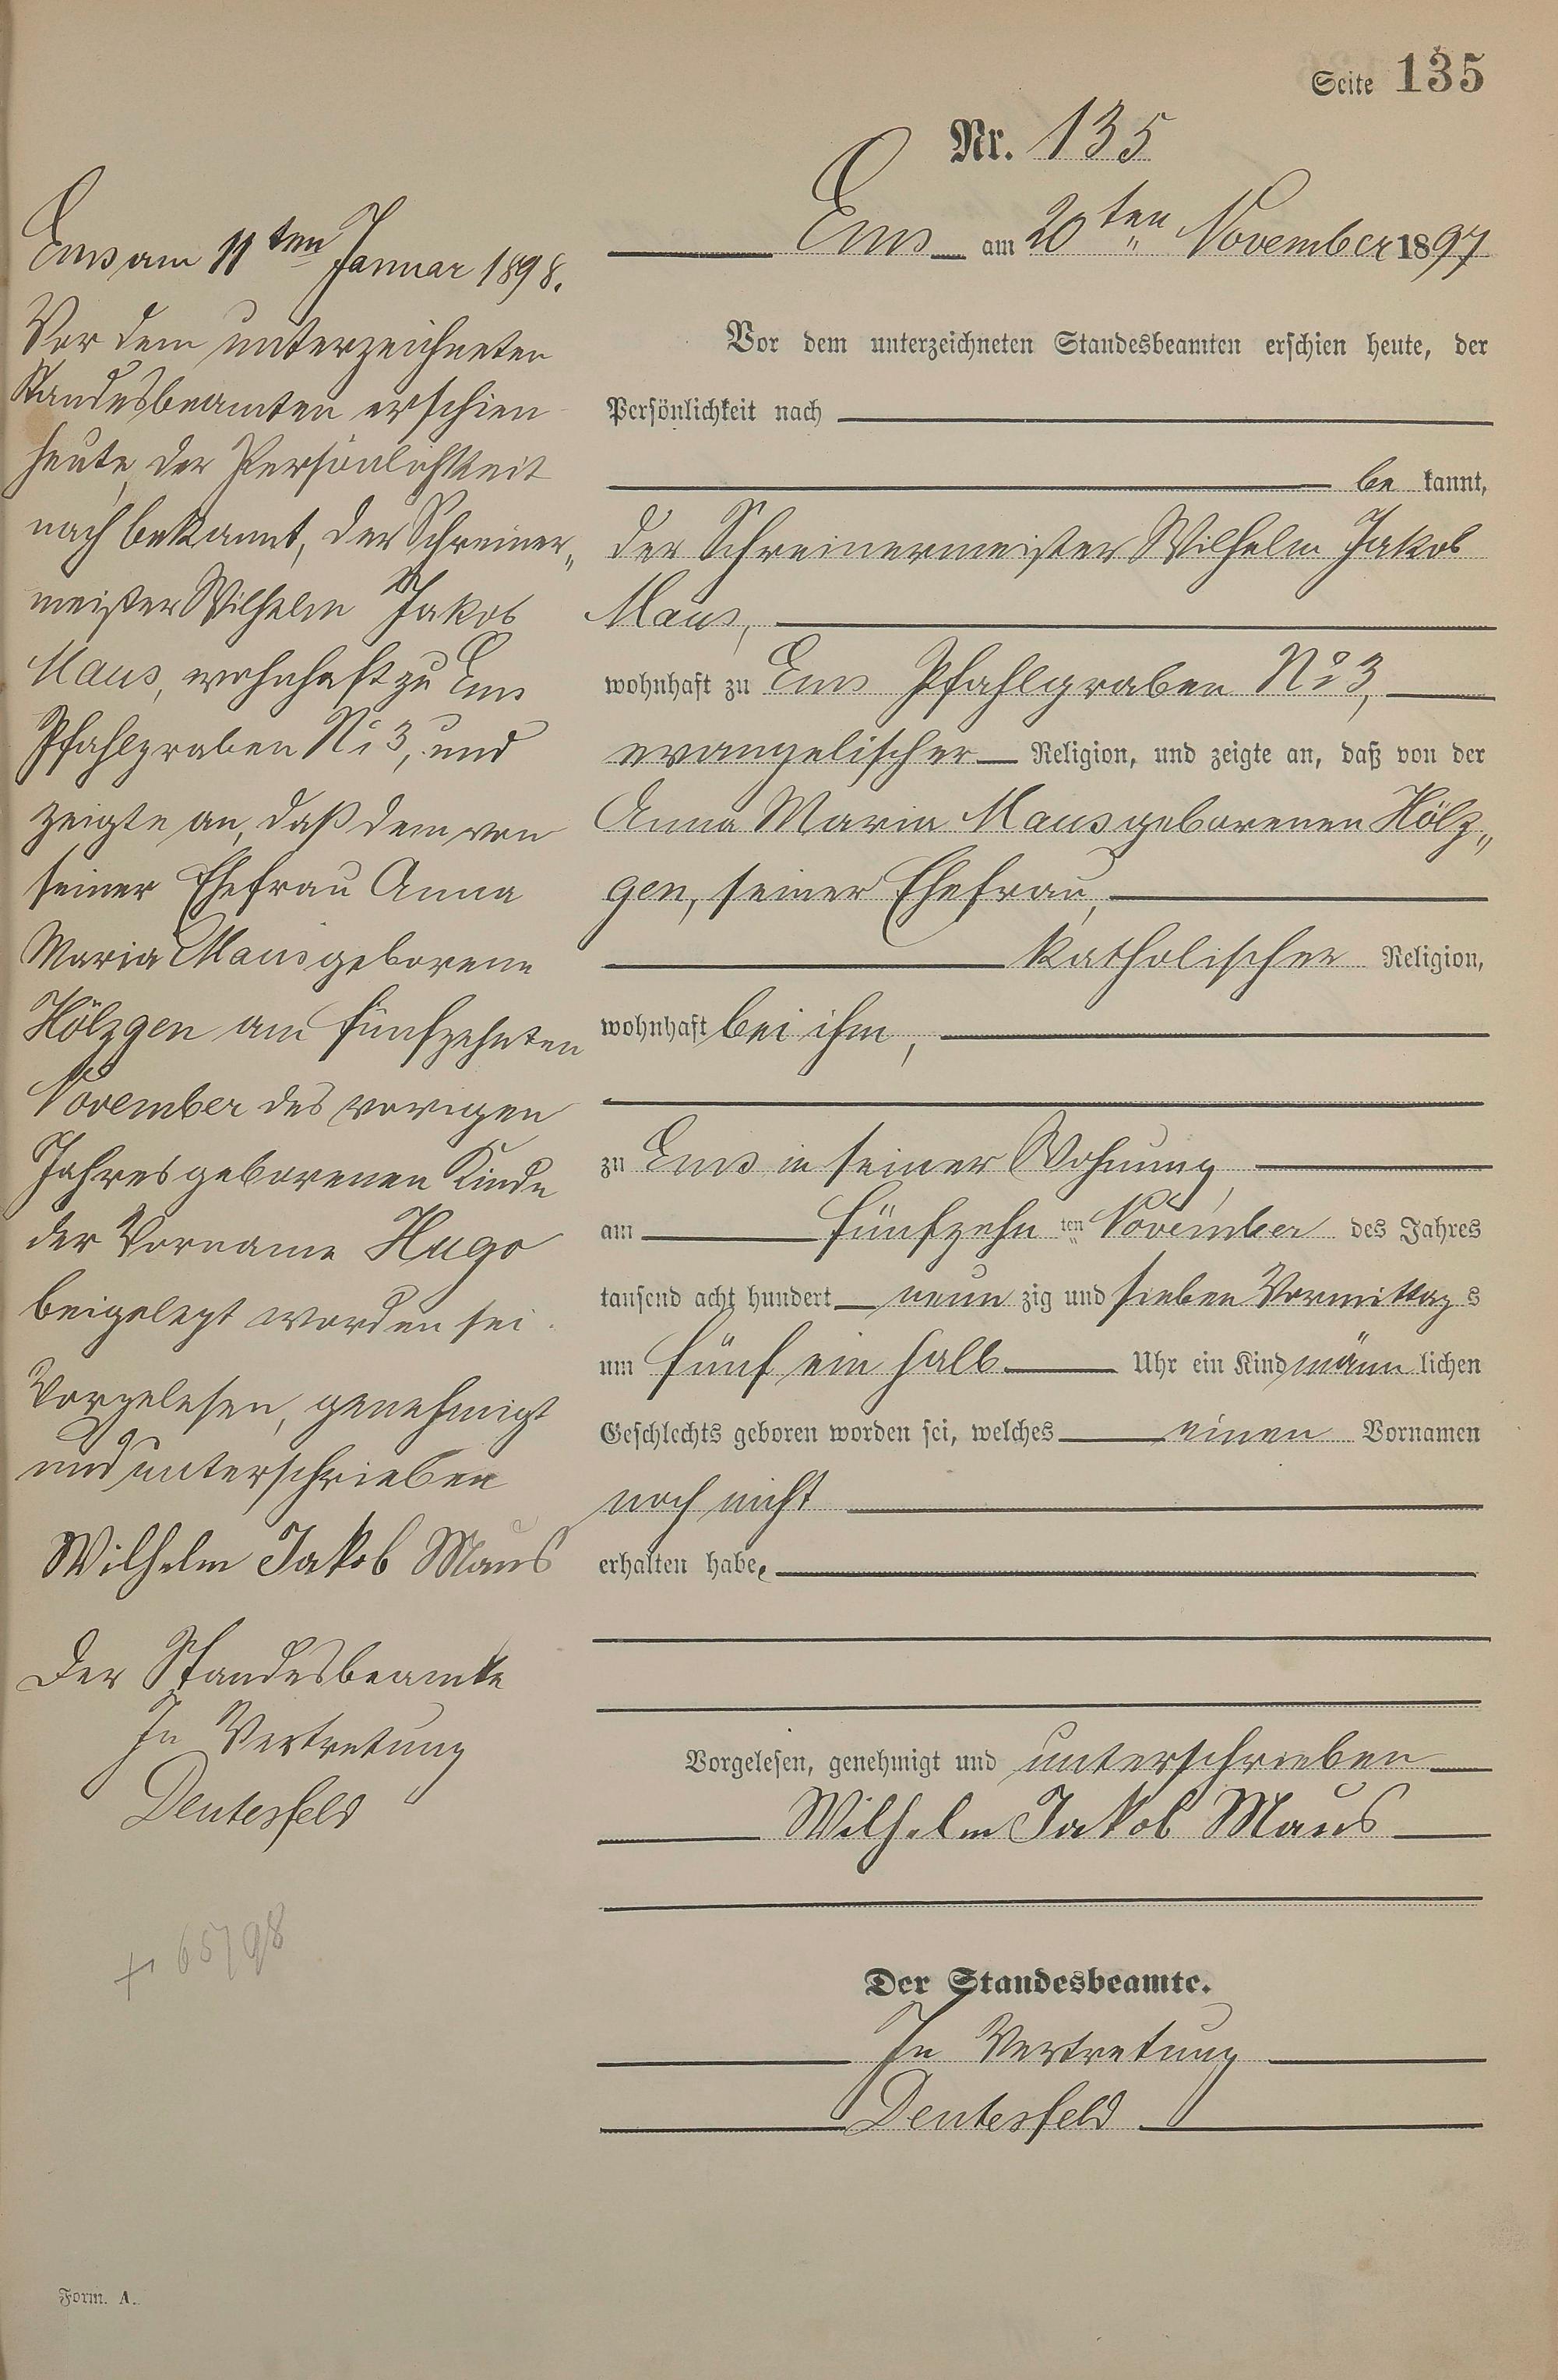 Seite 135
Nr. 135
Ems am 20ten November 1897
Vor dem unterzeichneten Standesbeamten erschien heute, der
Persönlichkeit nach
be kannt,
der Schreinermeister Wilhelm Jakob
Maus,
wohnhaft zu Ems Pfahlgraben No 3,
evangelischer Religion, und zeigte an, daß von der
Anna Maria Maus geborenen Hölz„
gen, seiner Ehefrau,
katholischer Religion,
wohnhaft bei ihm,
zu Ems in seiner Wohnung,
am fünfzehn ten November des Jahres
tausend acht hundert neun zig und sieben Vormittag s
um fünf ein halb Uhr ein Kind männ lichen
Geschlechts geboren worden sei, welches einen Vornamen
noch nicht
erhalten habe.
Vorgelesen, genehmigt und unterschrieben
Wilhelm Jakob Maus
Der Standesbeamte.
In Vertretung
Deutesfeld
Ems am 11ten Januar 1898.
Vor dem unterzeichneten
Standesbeamten erschien
heute, der Persönlichkeit
nach bekannt, der Schreiner„
meister Wilhelm Jakob
Maus, wohnhaft zu Ems
Pfahlgraben No 3, und
zeigte an, daß dem von
seiner Ehefrau Anna
Maria Maus geborene
Hölzgen am fünfzehnten
November des vorigen
Jahres geborenen Kinde
der Vorname Hugo
beigelegt worden sei.
Vorgelesen, genehmigt
und unterschrieben
Wilhelm Jakob Maus
Der Standesbeamte
In Vertretung
Deutesfeld
+ 65/98
Form. A.